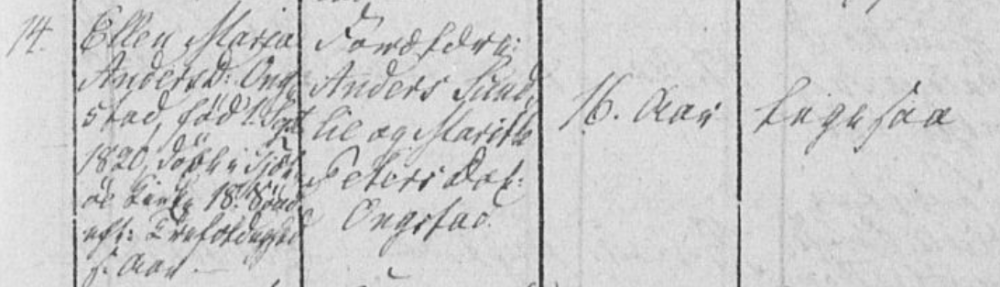 14.
Ellen Maria
Andersd: Ong-
stad, født 1. Sept
1820, døbt i
Kirke 18. Sønd
eft: Trefoldighed
s. Aar
Forældre:
Anders Sund,
lie og Marithe
Peters Dat:
Ongstad.
16. Aar
Ligesaa